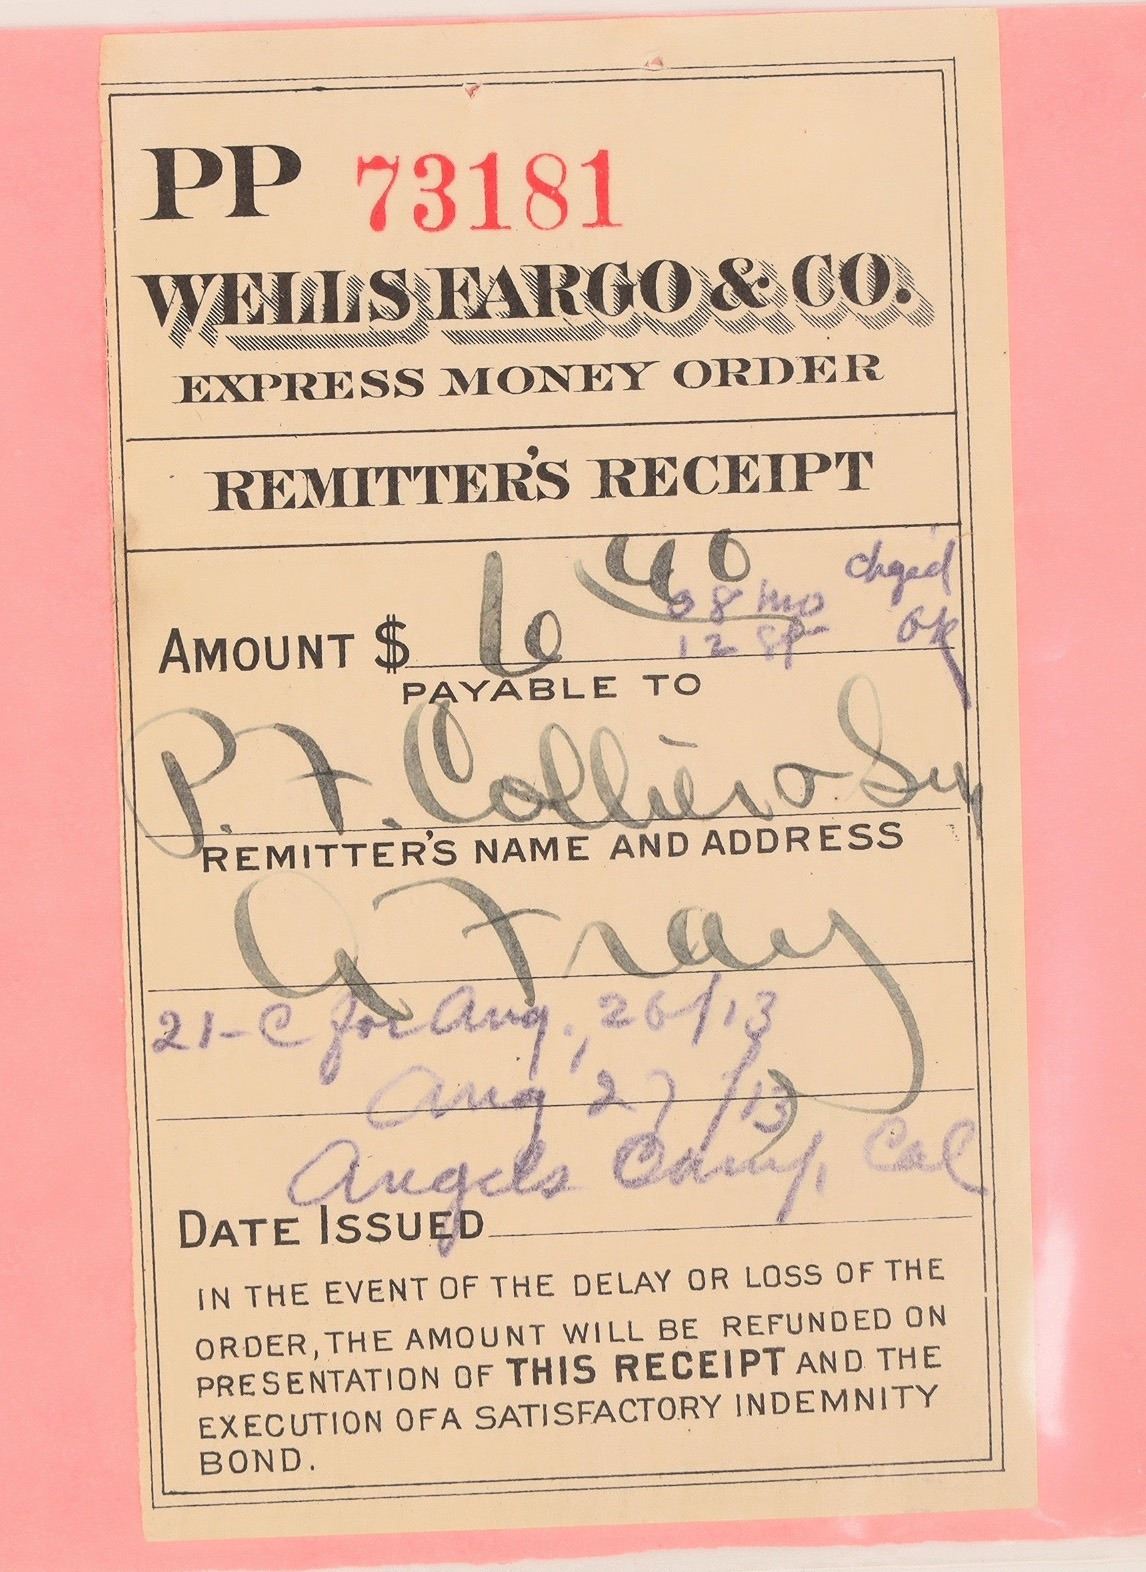 PP 73181
WELLS FARGO & CO.
EXPRESS MONEY ORDER
REMITTER'S RECEIPT
chgd
08 mo
ok
AMOUNT $ 6 40
12 SP
PAYABLE TO
P. F. Collier & Son
REMITTER'S NAME AND ADDRESS
A Fray
21-C for Aug., 26/13
Aug 27/13
Angels Camp, Cal
DATE ISSUED
IN THE EVENT OF THE DELAY OR LOSS OF THE
ORDER, THE AMOUNT WILL BE REFUNDED ON
PRESENTATION OF THIS RECEIPT AND THE
EXECUTION OF A SATISFACTORY INDEMNITY
BOND.